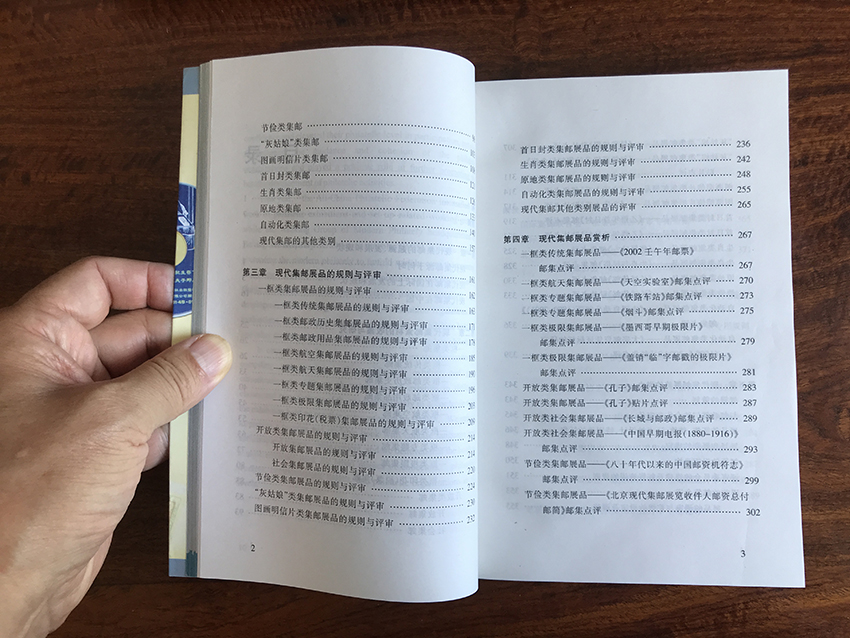 节俭类集邮
“灰姑娘”类集邮
图画明信片类集邮
首日封类集邮
生肖类集邮
原地类集邮
自动化类集邮
现代集邮的其他类别
第三章 现代集邮展品的规则与评审
一框类集邮展品的规则与评审
一框类传统集邮展品的规则与评审
一框类邮政历史集邮展品的规则与评审
一框类邮政用品集邮展品的规则与评审
一框类航空集邮展品的规则与评审
一框类航天集邮展品的规则与评审
一框类专题集邮展品的规则与评审
一框类极限集邮展品的规则与评审
一框类印花(税票)集邮展品的规则与评审 208
开放类集邮展品的规则与评审 214
开放集邮展品的规则与评审 214
社会集邮展品的规则与评审 220
节俭类集邮展品的规则与评审 224
“灰姑娘”类集邮展品的规则与评审 230
图画明信片类集邮展品的规则与评审 232
2
首日封类集邮展品的规则与评审 236
生肖类集邮展品的规则与评审 242
原地类集邮展品的规则与评审 248
自动化类集邮展品的规则与评审 255
现代集邮其他类别展品的评审 265
第四章 现代集邮展品赏析 267
一框类传统集邮展品——《2002 壬午年邮票》
邮集点评 267
一框类航天集邮展品——《天空实验室》邮集点评 270
一框类专题集邮展品——《铁路车站》邮集点评 273
一框类专题集邮展品——《烟斗》邮集点评 275
一框类极限集邮展品——《墨西哥早期极限片》
邮集点评 279
一框类极限集邮展品——《盖销“临”字邮戳的极限片》
邮集点评 281
开放类集邮展品——《孔子》邮集点评 283
开放类集邮展品——《孔子》贴片点评 287
开放类社会集邮展品——《长城与邮政》邮集点评 289
开放类社会集邮展品——《中国早期电报(1880-1916)》
邮集点评 293
节俭类集邮展品——《八十年代以来的中国邮资机符志》
邮集点评 299
节俭类集邮展品——《北京现代集邮展览收件人邮资总付
邮简》邮集点评 302
3